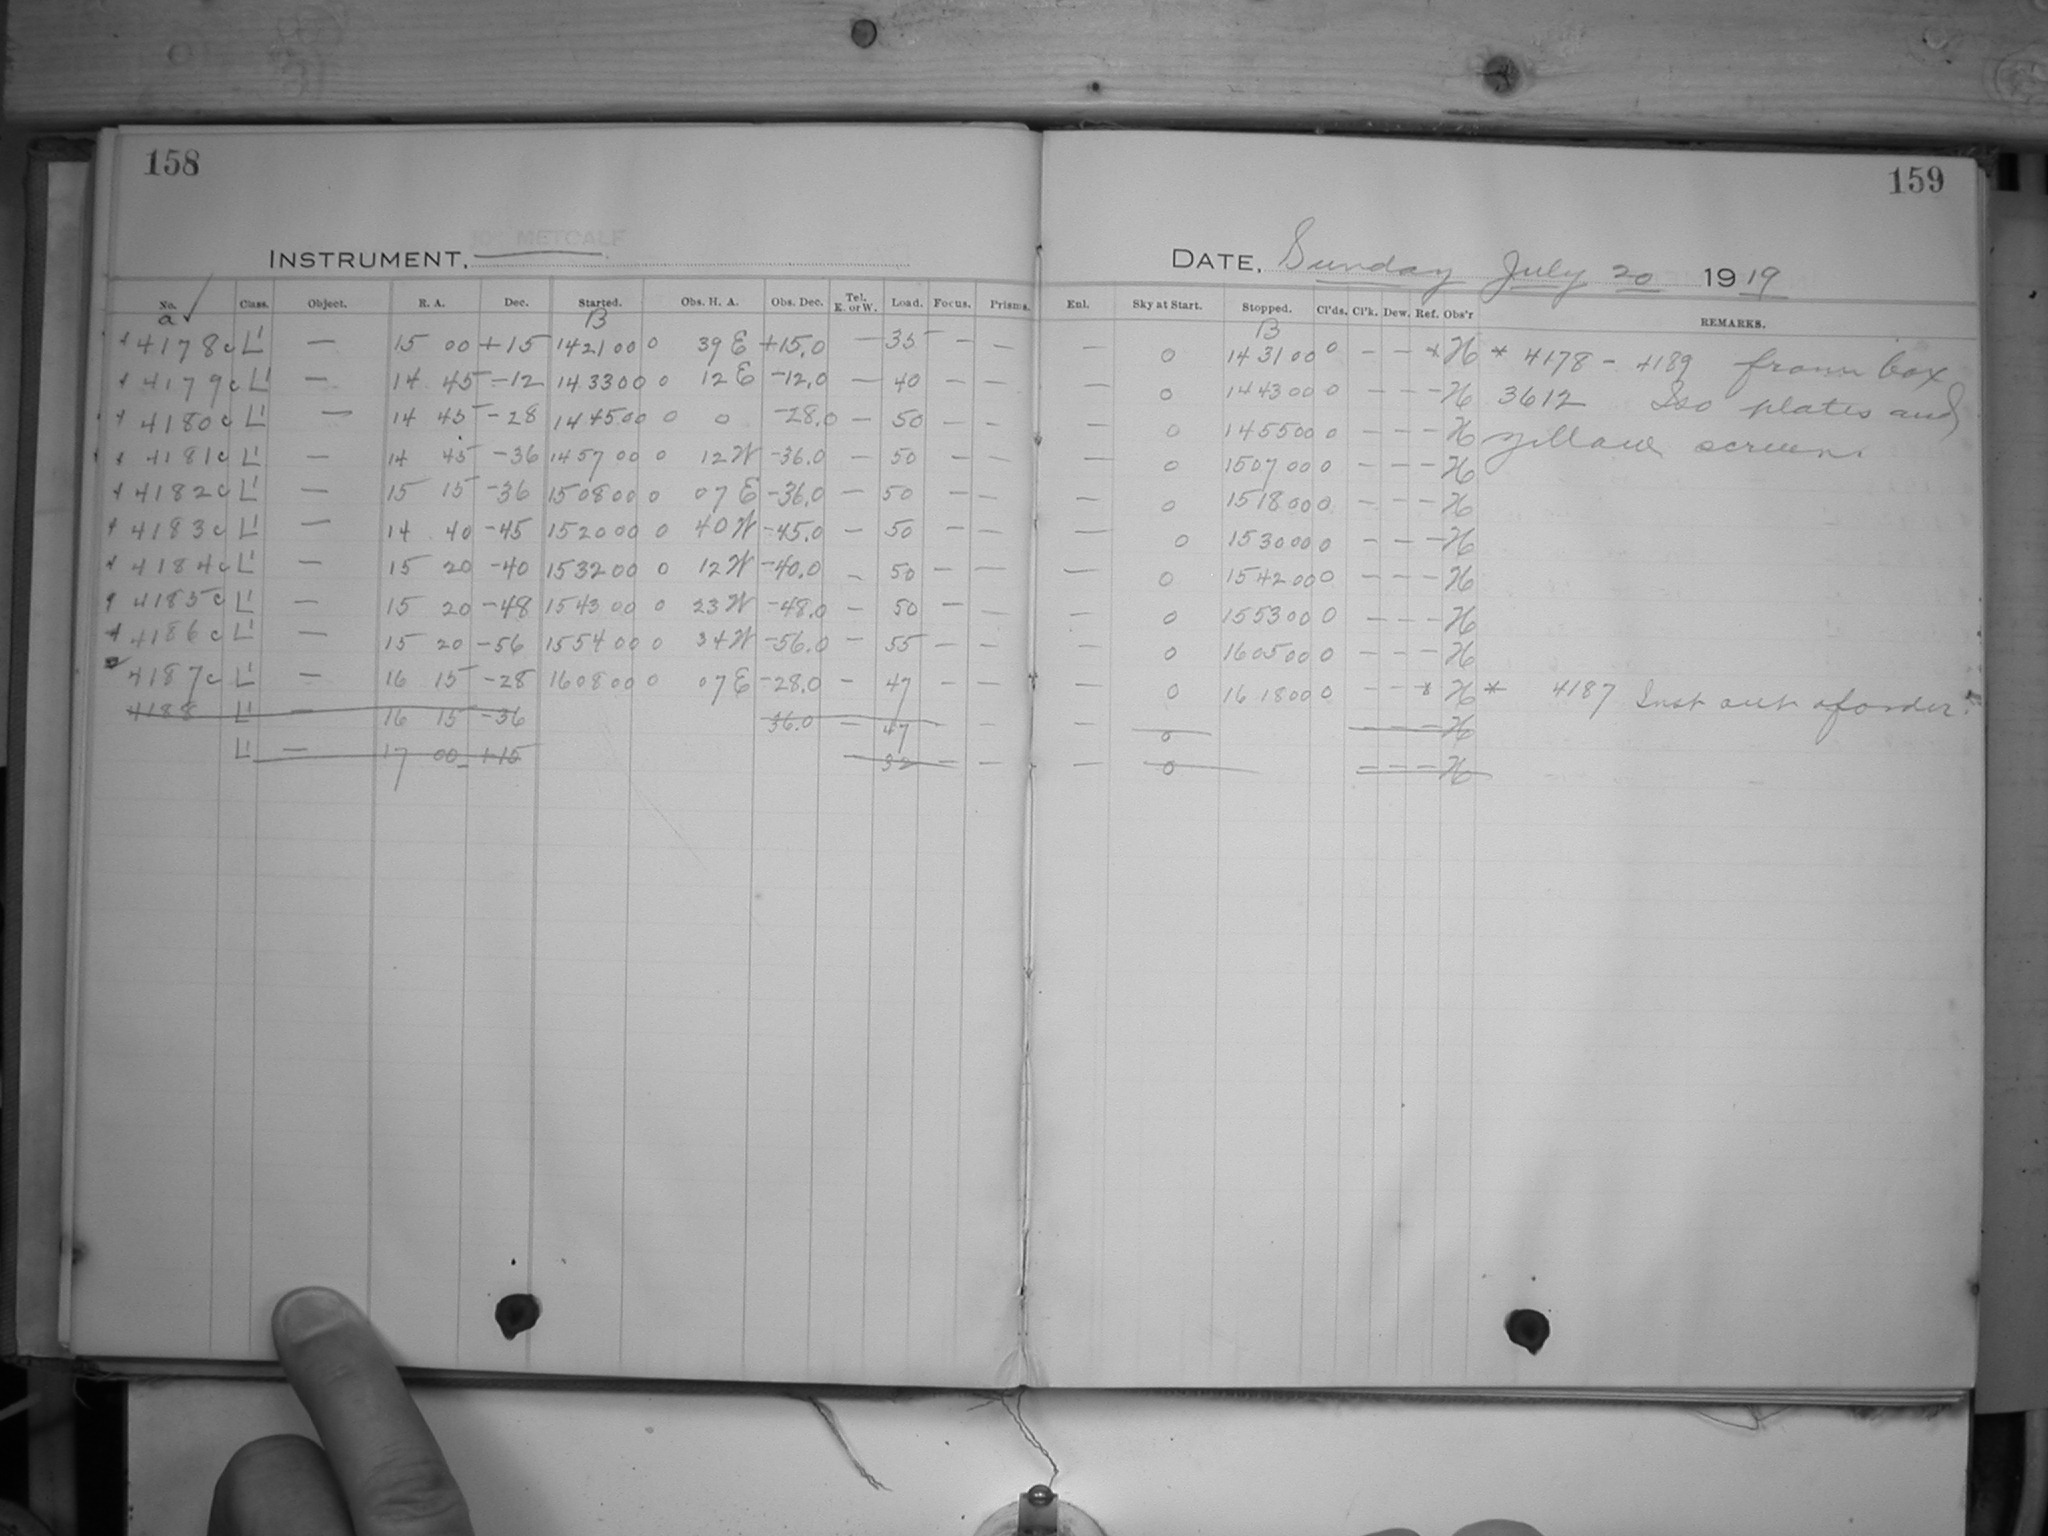 158
159
10" METCALF
INSTRUMENT,
DATE, Sunday July 20 1919
No. Class. Object. R. A. Dec. Started. Obs. H. A. Obs. Dec. Tel. E. or W. Load. Focus. Prisms. Enl. Sky at Start. Stopped. Cl'ds. Cl'k. Dew. Ref. Obs'r REMARKS.
a ✓ B B
4178c L' — 15 00 +15 142100 0 39 E +15.0 — 35 — — — 0 143100 0 — — * H * 4178 - 4189 from box
4179c L' — 14 45 -12 143300 0 12 E -12.0 — 40 — — — 0 144300 0 — — — H 3612 Iso plates and
4180c L' — 14 45 -28 144500 0 0 -28.0 — 50 — — — 0 145500 0 — — — H yellow screen.
4181c L' — 14 45 -36 145700 0 12 W -36.0 — 50 — — — 0 150700 0 — — — H
4182c L' — 15 15 -36 150800 0 07 E -36.0 — 50 — — — 0 151800 0 — — — H
4183c L' — 14 40 -45 152000 0 40 W -45.0 — 50 — — — 0 153000 0 — — — H
4184c L' — 15 20 -40 153200 0 12 W -40.0 — 50 — — — 0 154200 0 — — — H
4185c L' — 15 20 -48 154300 0 23 W -48.0 — 50 — — — 0 155300 0 — — — H
4186c L' — 15 20 -56 155400 0 34 W -56.0 — 55 — — — 0 160500 0 — — — H
4187c L' — 16 15 -28 160800 0 07 E -28.0 — 47 — — — 0 161800 0 — — * H * 4187 Inst out of order.
4188 L' — 16 15 -36 36.0 — 47 — — — 0 — — — H
L' — 17 00 +15 — 32 — — — 0 — — — H